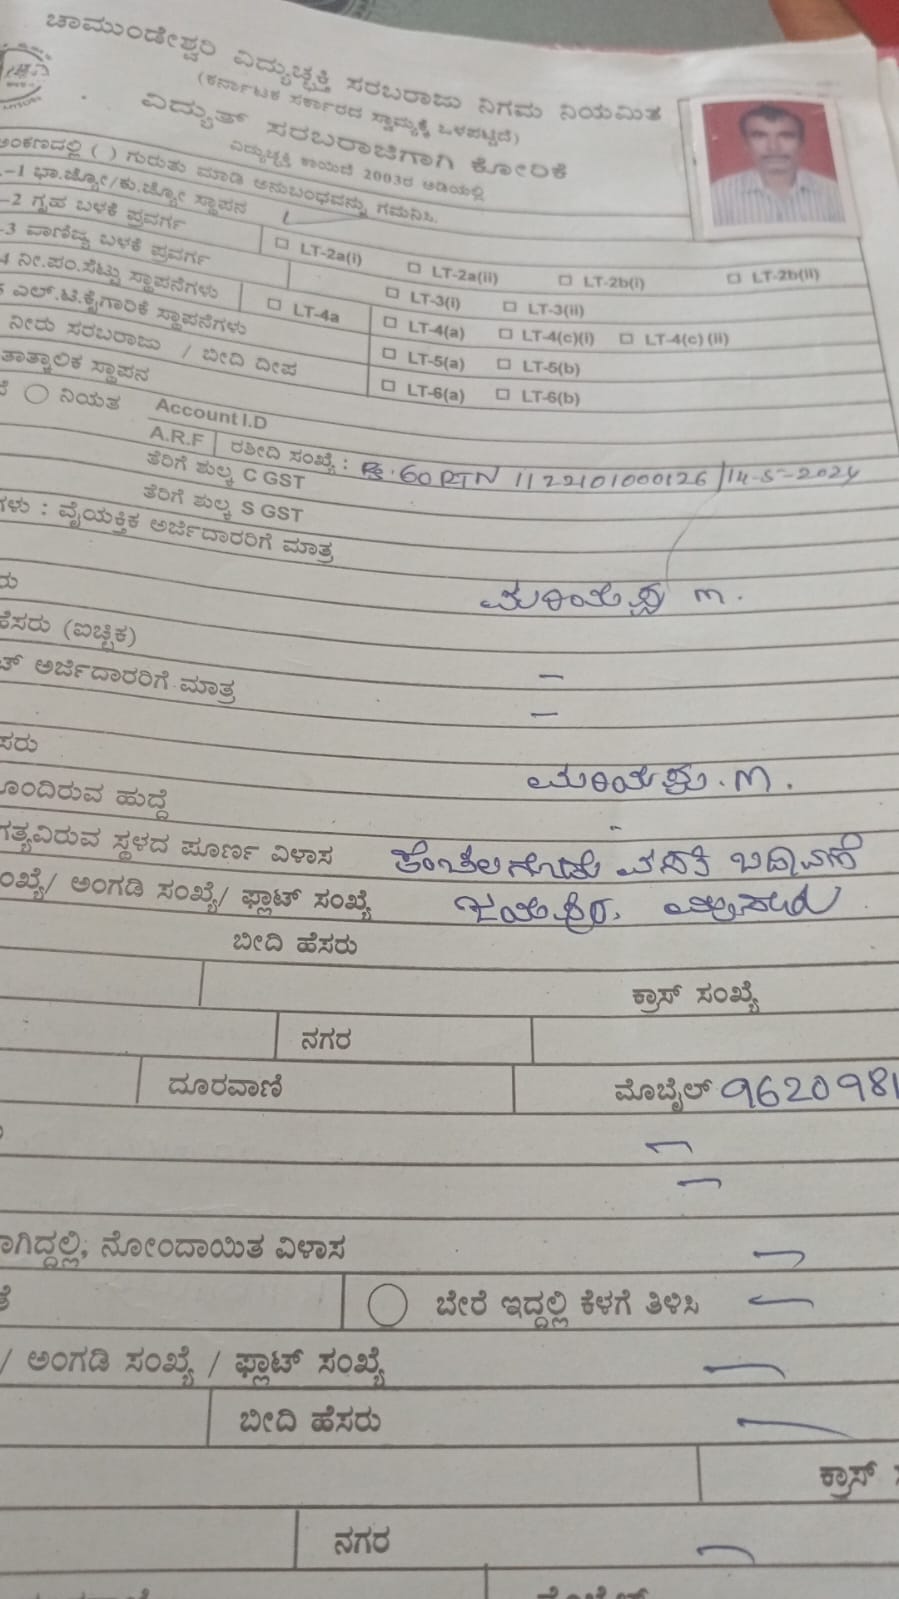 ಚಾಮುಂಡೇಶ್ವರಿ ವಿದ್ಯುಚ್ಛಕ್ತಿ ಸರಬರಾಜು ನಿಗಮ ನಿಯಮಿತ
(ಕರ್ನಾಟಕ ಸರ್ಕಾರದ ಸ್ವಾಮ್ಯಕ್ಕೆ ಒಳಪಟ್ಟಿದೆ)
ವಿದ್ಯುತ್ ಸರಬರಾಜಿಗಾಗಿ ಕೋರಿಕೆ
ವಿದ್ಯುಚ್ಛಕ್ತಿ ಕಾಯಿದೆ 2003ರ ಅಡಿಯಲ್ಲಿ
ಅಂಕಣದಲ್ಲಿ ( ) ಗುರುತು ಮಾಡಿ ಅನುಬಂಧವನ್ನು ಗಮನಿಸಿ.
-1 ಭಾ.ಜ್ಯೋ/ಕು.ಜ್ಯೋ ಸ್ಥಾಪನ
-2 ಗೃಹ ಬಳಕೆ ಪ್ರವರ್ಗ LT-2a(i) LT-2a(ii) LT-2b(i) LT-2b(ii)
-3 ವಾಣಿಜ್ಯ ಬಳಕೆ ಪ್ರವರ್ಗ LT-3(i) LT-3(ii)
4 ನೀ.ಪಂ.ಸೆಟ್ಟು ಸ್ಥಾಪನೆಗಳು LT-4a LT-4(a) LT-4(c)(i) LT-4(c) (ii)
ಎಲ್.ಟಿ.ಕೈಗಾರಿಕೆ ಸ್ಥಾಪನೆಗಳು LT-5(a) LT-5(b)
ನೀರು ಸರಬರಾಜು / ಬೀದಿ ದೀಪ LT-6(a) LT-6(b)
ತಾತ್ಕಾಲಿಕ ಸ್ಥಾಪನ
ನಿಯತ Account I.D
A.R.F ರಶೀದಿ ಸಂಖ್ಯೆ : Rs. 60 RTN 1122101000126/14-5-2024
ತೆರಿಗೆ ಶುಲ್ಕ C GST
ತೆರಿಗೆ ಶುಲ್ಕ S GST
ಗಳು : ವೈಯಕ್ತಿಕ ಅರ್ಜಿದಾರರಿಗೆ ಮಾತ್ರ
ರು
ಹೆಸರು (ಐಚ್ಚಿಕ)
ಅರ್ಜಿದಾರರಿಗೆ ಮಾತ್ರ
ಸರು
ಹೊಂದಿರುವ ಹುದ್ದೆ
ಗತ್ಯವಿರುವ ಸ್ಥಳದ ಪೂರ್ಣ ವಿಳಾಸ
ಸಂಖ್ಯೆ/ ಅಂಗಡಿ ಸಂಖ್ಯೆ/ ಫ್ಲಾಟ್ ಸಂಖ್ಯೆ
ಬೀದಿ ಹೆಸರು
ಕ್ರಾಸ್ ಸಂಖ್ಯೆ
ನಗರ
ದೂರವಾಣಿ ಮೊಬೈಲ್ 9620981
ಆಗಿದ್ದಲ್ಲಿ, ನೋಂದಾಯಿತ ವಿಳಾಸ
ಬೇರೆ ಇದ್ದಲ್ಲಿ ಕೆಳಗೆ ತಿಳಿಸಿ
/ ಅಂಗಡಿ ಸಂಖ್ಯೆ / ಫ್ಲಾಟ್ ಸಂಖ್ಯೆ
ಬೀದಿ ಹೆಸರು
ಕ್ರಾಸ್
ನಗರ